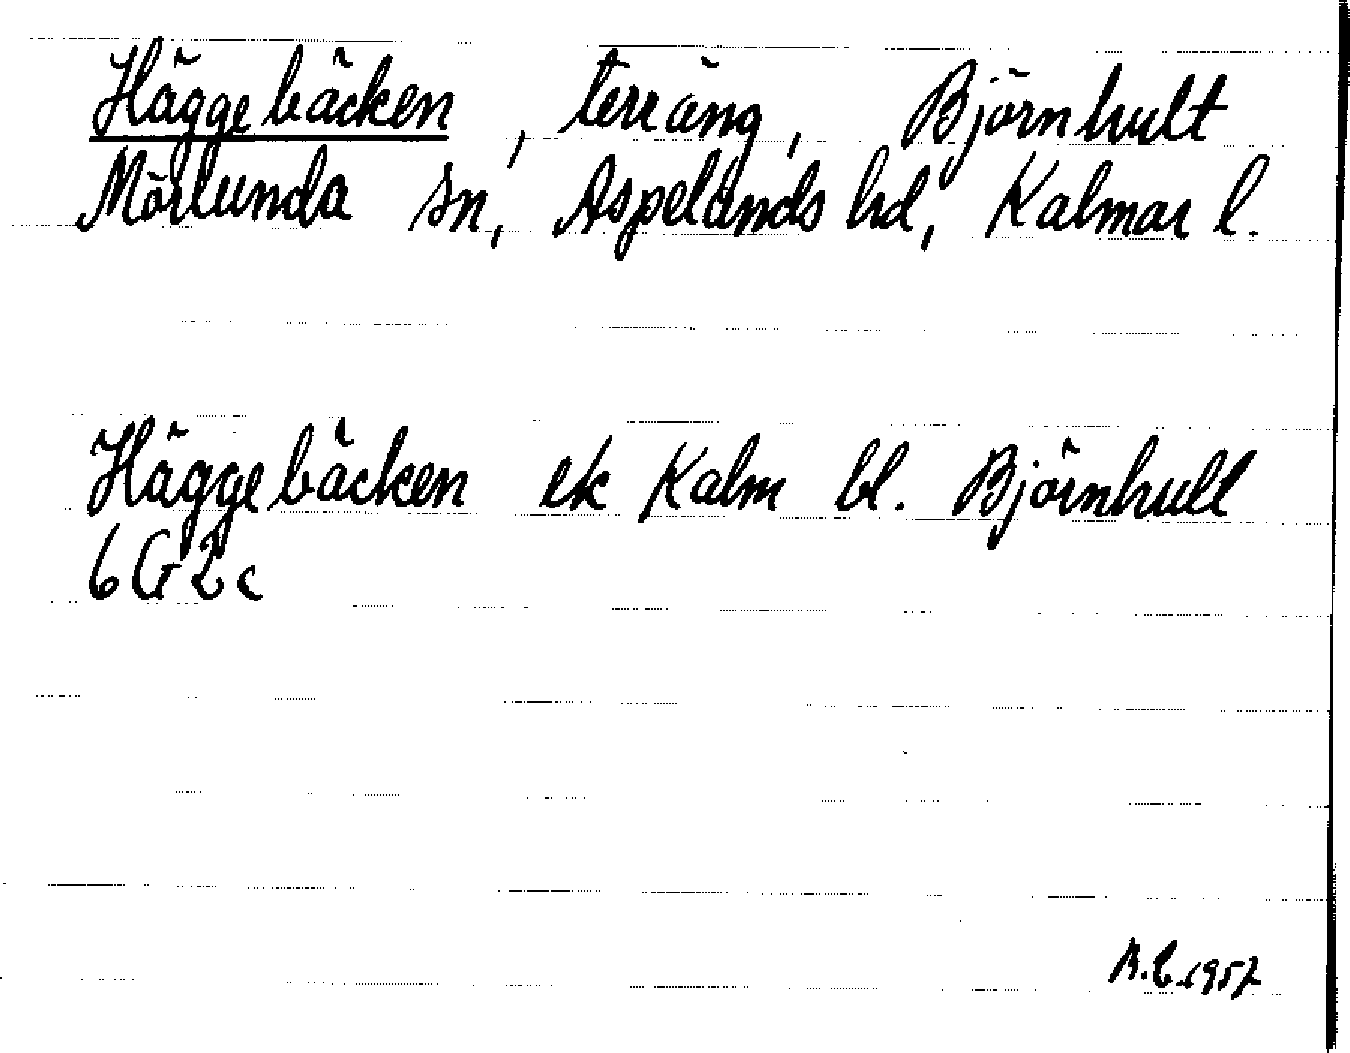 Häggebäcken, terräng, Björnhult
Mörlunda sn, Aspelands hd, Kalmar l.
Häggebäcken ek Kalm bl. Björnhult
6G2c
1957